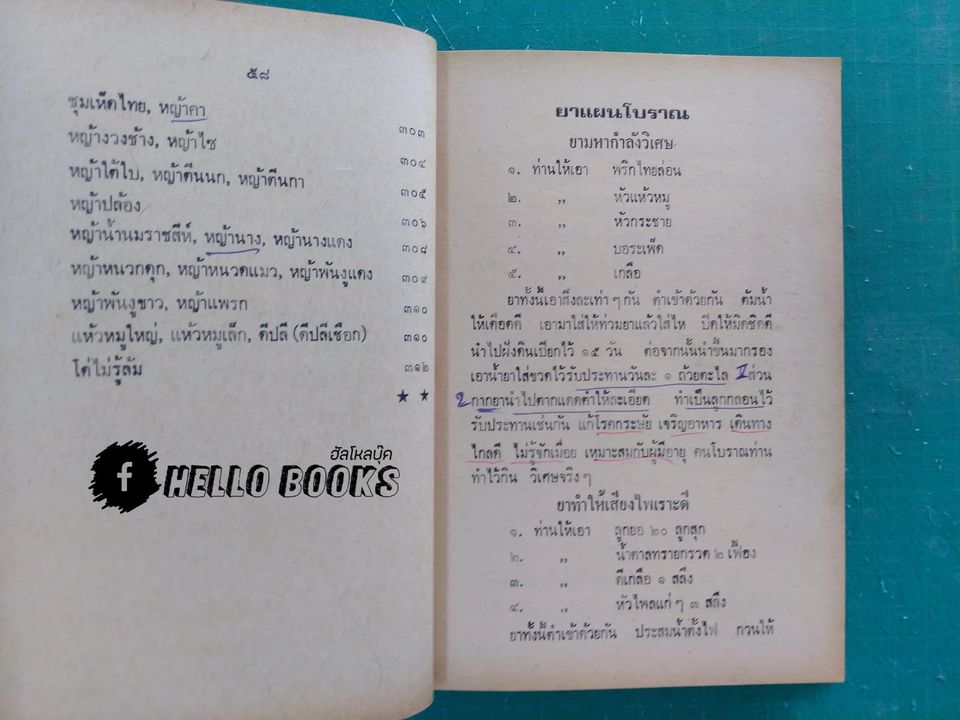 ๕๘
ชุมเห็ดไทย, หญ้าคา
๓๐๓
หญ้างวงช้าง, หญ้าไซ
๓๐๔
หญ้าใต้ใบ, หญ้าตีนนก, หญ้าตีนกา
๓๐๕
หญ้าปล้อง
๓๐๖
หญ้าน้ำนมราชสีห์, หญ้านาง, หญ้านางแดง
๓๐๘
หญ้าหนวกดุก, หญ้าหนวดแมว, หญ้าพันงูแดง
๓๐๙
หญ้าพันงูขาว, หญ้าแพรก
๓๑๐
แห้วหมูใหญ่, แห้วหมูเล็ก, ดีปลี (ดีปลีเชือก)
๓๑๐
โด่ไม่รู้ล้ม
๓๑๒
★ ★
ฮัลโหลบุ๊ค
f HELLO BOOKS
ยาแผนโบราณ
ยามหากำลังวิเศษ
๑. ท่านให้เอา พริกไทยล่อน
๒. ,, หัวแห้วหมู
๓. ,, หัวกระชาย
๔. ,, บอระเพ็ด
๕. ,, เกลือ
ยาทั้งนี้เอาสิ่งละเท่า ๆ กัน ตำเข้าด้วยกัน ต้มน้ำ
ให้เดือดดี เอามาใส่ให้ท่วมยาแล้วใส่ไห ปิดให้มิดชิดดี
นำไปฝังดินเปียกไว้ ๑๕ วัน ต่อจากนั้นนำขึ้นมากรอง
เอาน้ำยาใส่ขวดไว้รับประทานวันละ ๑ ถ้วยตะไล ส่วน
2 กากยานำไปตากแดดตำให้ละเอียด ทำเป็นลูกกลอนไว้
รับประทานเช่นกัน แก้โรคกระษัย เจริญอาหาร เดินทาง
ไกลดี ไม่รู้จักเมื่อย เหมาะสมกับผู้มีอายุ คนโบราณท่าน
ทำไว้กิน วิเศษจริง ๆ
ยาทำให้เสียงไพเราะดี
๑. ท่านให้เอา ลูกยอ ๒๐ ลูกสุก
๒. ,, น้ำตาลทรายกรวด ๒ เฟื้อง
๓. ,, ดีเกลือ ๑ สลึง
๔. ,, หัวไพลแก่ ๆ ๓ สลึง
ยาทั้งนี้ตำเข้าด้วยกัน ประสมน้ำตั้งไฟ กวนให้